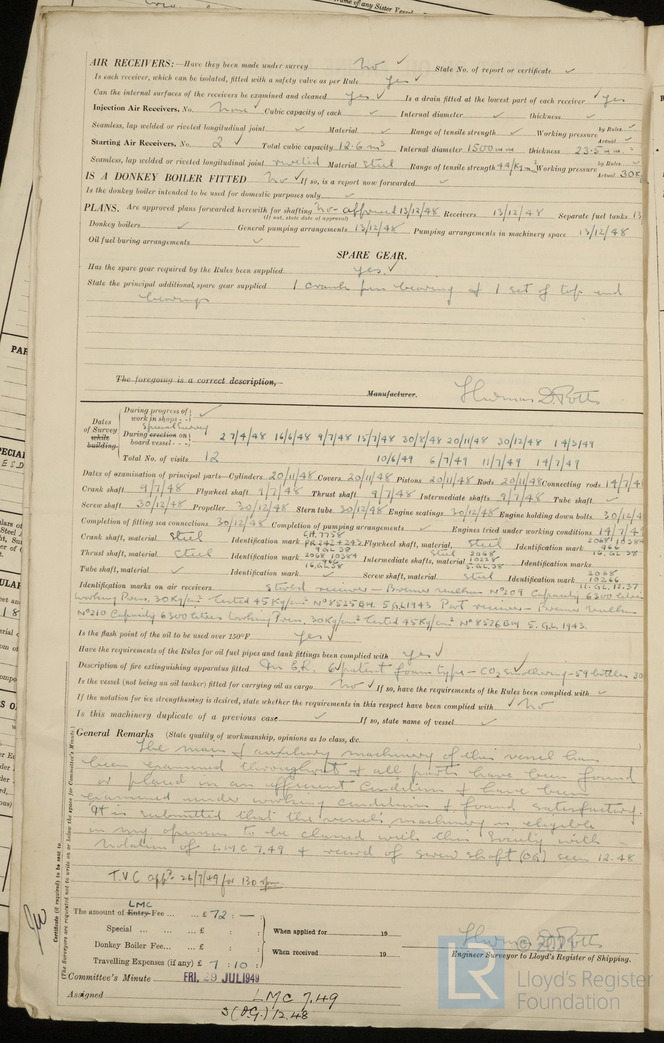 AIR RECEIVERS:—Have they been made under survey no ✓ State No. of report or certificate ✓
Is each receiver, which can be isolated, fitted with a safety valve as per Rule yes ✓
Can the internal surfaces of the receivers be examined and cleaned yes ✓ Is a drain fitted at the lowest part of each receiver ✓ yes
Injection Air Receivers, No. none ✓ Cubic capacity of each ✓ Internal diameter ✓ thickness ✓
Seamless, lap welded or riveted longitudinal joint ✓ Material ✓ Range of tensile strength ✓ Working pressure by Rules ✓ Actual ✓
Starting Air Receivers, No. 2 ✓ Total cubic capacity 12.6 m³ Internal diameter 1500 mm thickness 23.5 mm
Seamless, lap welded or riveted longitudinal joint riveted Material steel Range of tensile strength 44/Kg m² Working pressure by Rules Actual 30K
IS A DONKEY BOILER FITTED no ✓ If so, is a report now forwarded ✓
Is the donkey boiler intended to be used for domestic purposes only ✓
PLANS. Are approved plans forwarded herewith for shafting no - approved 13/12/48 Receivers 13/12/48 Separate fuel tanks 13
(If not, state date of approval)
Donkey boilers ✓ General pumping arrangements 13/12/48 Pumping arrangements in machinery space 13/12/48
Oil fuel buring arrangements ✓
SPARE GEAR.
Has the spare gear required by the Rules been supplied yes ✓
State the principal additional spare gear supplied 1 crank pin bearing & 1 set of top end
bearings
The foregoing is a correct description,
Manufacturer. Thomas D. Potts
Dates of Survey while building
During progress of work in shops ✓
Special Survey
During erection on board vessel 27/4/48 16/6/48 9/7/48 15/7/48 30/8/48 20/11/48 30/12/48 14/3/49
Total No. of visits 12 10/6/49 6/7/49 11/7/49 14/7/49
Dates of examination of principal parts—Cylinders 20/11/48 Covers 20/11/48 Pistons 20/11/48 Rods 20/11/48 Connecting rods 14/7/4
Crank shaft 9/7/48 Flywheel shaft 9/7/48 Thrust shaft 9/7/48 Intermediate shafts 9/7/48 Tube shaft ✓
Screw shaft 30/12/48 Propeller 30/12/48 Stern tube 30/12/48 Engine seatings 30/12/48 Engine holding down bolts 30/12/4
Completion of fitting sea connections 30/12/48 Completion of pumping arrangements ✓ Engines tried under working conditions 14/7/4
Crank shaft, material steel Identification mark Flywheel shaft, material steel Identification mark
Thrust shaft, material steel Identification mark Intermediate shafts, material steel Identification marks
Tube shaft, material ✓ Identification mark ✓ Screw shaft, material steel Identification mark
Identification marks on air receivers Starbd receiver - Bremer Vulkan No 209 Capacity 6300 litres
Working Press. 30 Kg/cm² tested 45 Kg/cm² No 8525 BM 5.GL 1943 Port receiver - Bremer Vulkan
No 210 Capacity 6300 litres Working Press. 30 Kg/cm² tested 45 Kg/cm² No 8526 BM 5.GL 1943
Is the flash point of the oil to be used over 150°F. yes ✓
Have the requirements of the Rules for oil fuel pipes and tank fittings been complied with yes ✓
Description of fire extinguishing apparatus fitted In E.R. 6 patent foam type - CO₂ smothering - 59 bottles 30
Is the vessel (not being an oil tanker) fitted for carrying oil as cargo no ✓ If so, have the requirements of the Rules been complied with ✓
If the notation for ice strengthening is desired, state whether the requirements in this respect have been complied with ✓ no
Is this machinery duplicate of a previous case ✓ If so, state name of vessel ✓
General Remarks (State quality of workmanship, opinions as to class, &c.
The main & auxiliary machinery of this vessel has
been examined throughout & all parts have been found
or placed in an efficient condition & have been
examined under working conditions & found satisfactory.
It is submitted that the vessels machinery is eligible
in my opinion to be classed with this Society with a
notation of LMC 7.49 & record of screw shaft (OG) seen 12.48
T.V.C appd. 26/7/49 for 130 rpm
The amount of Entry Fee LMC £ 72 : —
Special £ :
Donkey Boiler Fee £ :
Travelling Expenses (if any) £ 7 : 10 :
When applied for 19
When received 19
Thomas D. Potts
Engineer Surveyor to Lloyd's Register of Shipping.
Committee's Minute FRI. 29 JUL 1949
Assigned LMC 7.49
S(O.G.) 12.48
Certificate (if required) to be sent to
(The Surveyors are requested not to write on or below the space for Committee's Minute.)
© 2021
LR Lloyd's Register
Foundation